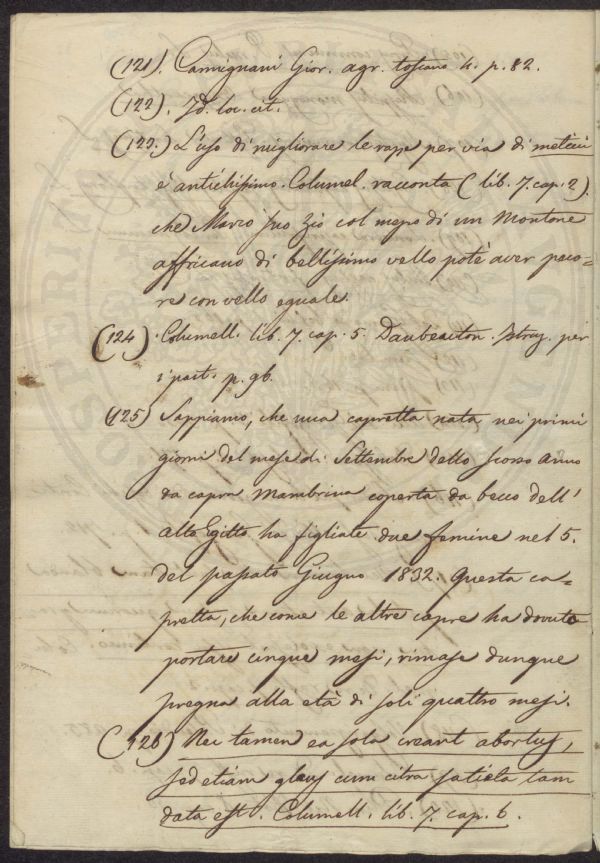 (121). Carmignani Gior. agr. toscano 4. p. 82.
(122). Id. loc. cit.
(123.) L'uso di migliorare le razze per via di meticci
è antichissimo. Columel. racconta (lib. 7. cap. 2).
che Marco suo zio col mezzo di un Montone
affricano di bellissimo vello potè aver peco-
re con vello eguale.
(124). Columell. lib. 7. cap. 5. Daubenton. Istruz. per
i past. p. 96.
(125) Sappiamo, che una capretta nata nei primi
giorni del mese di Settembre dello scorso anno
da capra Mambrina coperta da becco dell'
alto Egitto ha figliate due femine nel 5.
del passato Giugno 1832. Questa ca-
pretta, che come le altre capre ha dovuto
portare cinque mesi, rimase dunque
pregna alla età di soli quattro mesi.
(126) Nec tamen ea sola creant abortus,
sed etiam glans cum citra satietatem
data est. Columell. lib. 7. cap. 6.